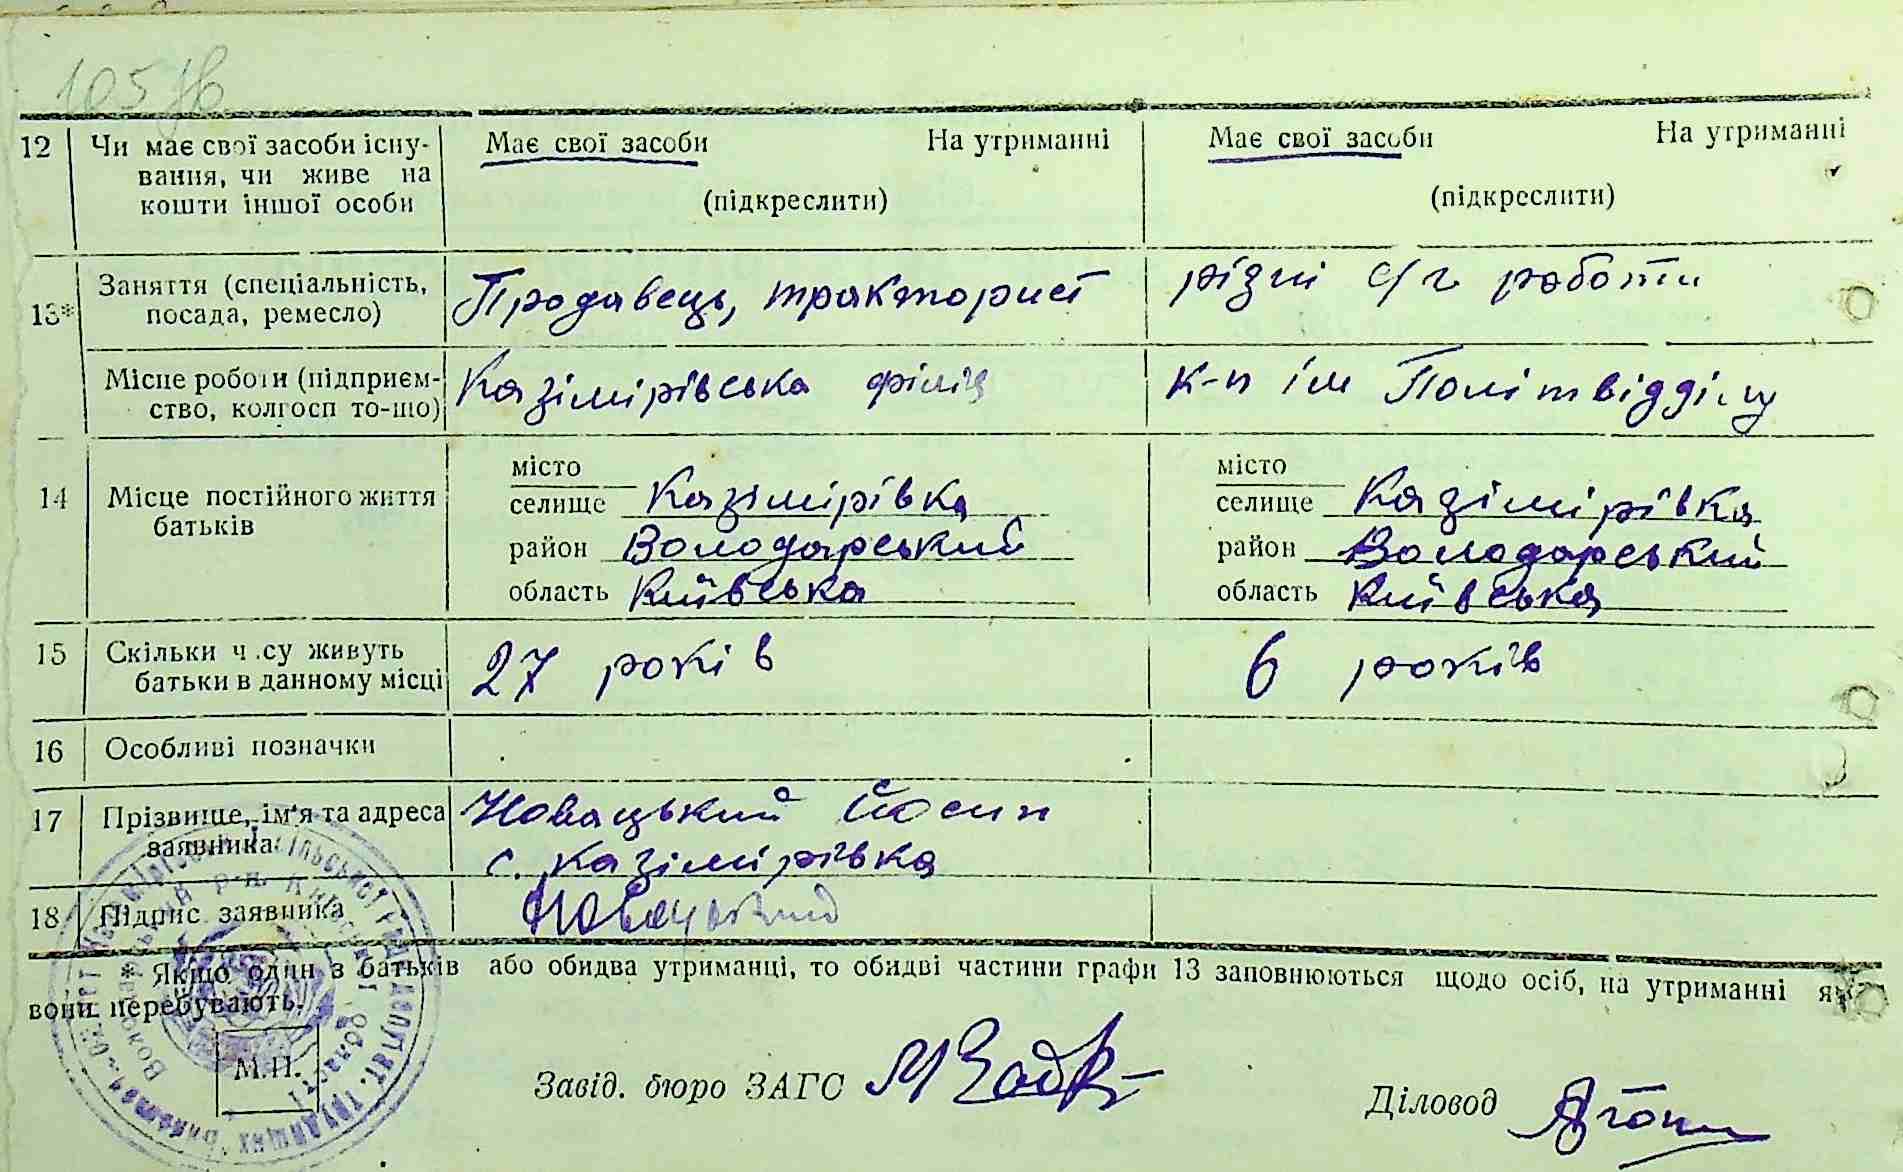 105
12 Чи має свої засоби існу- Має свої засоби На утриманні Має свої засоби На утриманні
вання, чи живе на
кошти іншої особи (підкреслити) (підкреслити)
13* Заняття (спеціальність, Продавець, тракторист різні с/г роботи
посада, ремесло)
Місце роботи (підприєм- Казімірівська філія к-п ім Політвідділу
ство, колгосп то-що)
14 Місце постійного життя місто місто
батьків селище Казімірівка селище Казімірівка
район Володарський район Володарський
область Київська область Київська
15 Скільки ч.су живуть 27 років 6 років
батьки в данному місці
16 Особливі позначки
17 Прізвище, ім'я та адреса Новацький Йосип
заявника с. Казімірівка
18 Підпис заявника Новацький
* Якщо один з батьків або обидва утриманці, то обидві частини графи 13 заповнюються щодо осіб, на утриманні як
вони перебувають.
М.П.
Завід. бюро ЗАГС
Діловод